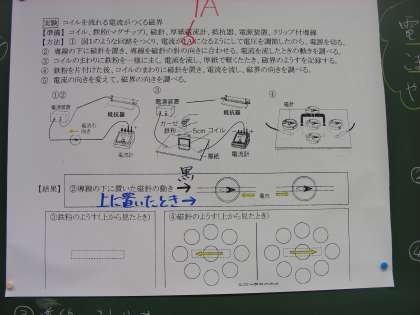 1A
実験 コイルを流れる電流がつくる磁界
【準備】コイル、鉄粉(マグチップ)、磁針、厚紙、電流計、抵抗器、電源装置、クリップ付導線
【方法】① 図1のような回路をつくり、電流が になるようにして電圧を調節したのち、電源を切る。
② 導線の下に磁針を置き、導線の向きを磁針の針の向きに合わせる。電流を流したときの動きを調べる。
③ コイルのまわりに鉄粉を一様にまし、電流を流し、厚紙で軽くたたき、磁界のようすを記録する。
④ 鉄粉を片付けた後、コイルのまわりに磁針を置き、電流を流し、磁界の向きを調べる。
⑤ 電流の向きを変えて、磁界の向きを調べる。
①②
③
④
電源装置
抵抗器
電流の向き
電流計
電源装置
抵抗器
ガーゼ
鉄粉
5cm コイル
厚紙
電流計
磁針
黒
【結果】②導線の下に置いた磁針の動き→
電流
上に置いたとき→
③鉄粉のようす(上から見たとき)
④磁針のようす(上から見たとき)